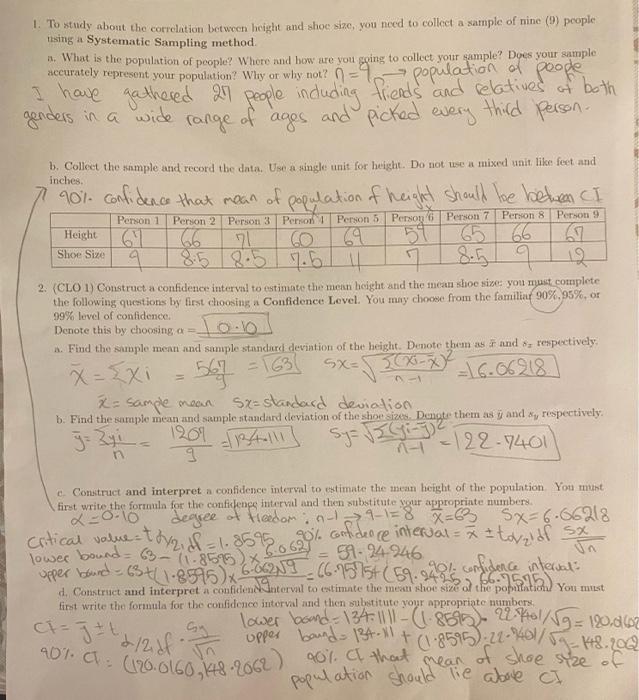 1. To study about the correlation between height and shoe size, you need to collect a sample of nine (9) people
using a Systematic Sampling method.
a. What is the population of people? Where and how are you going to collect your sample? Does your sample
accurately represent your population? Why or why not? n=9 → population of people
I have gathered 27 people including friends and relatives of both
genders in a wide range of ages and picked every third person.
b. Collect the sample and record the data. Use a single unit for height. Do not use a mixed unit like feet and
inches.
90% confidence that mean of population of height should be between CI
Person 1 Person 2 Person 3 Person 4 Person 5 Person 6 Person 7 Person 8 Person 9
Height 66 71 60 69 65 66 67
Shoe Size 9 8.5 8.5 7.5 11 7 8.5 9 12
2. (CLO 1) Construct a confidence interval to estimate the mean height and the mean shoe size: you must complete
the following questions by first choosing a Confidence Level. You may choose from the familiar 90%, 95%, or
99% level of confidence.
Denote this by choosing α = 0.10
a. Find the sample mean and sample standard deviation of the height. Denote them as x̄ and sₓ respectively.
x̄ = Σxi = 567/9 = 63 Sx = √Σ(xi-x̄)²/n-1 = 6.06218
x̄ = sample mean Sx = standard deviation
b. Find the sample mean and sample standard deviation of the shoe sizes. Denote them as ȳ and s_y respectively.
ȳ = Σyi/n = 1207/9 = 134.111 Sy = √Σ(yi-ȳ)²/n-1 = 22.7401
c. Construct and interpret a confidence interval to estimate the mean height of the population. You must
first write the formula for the confidence interval and then substitute your appropriate numbers.
α = 0.10 degree of freedom: n-1 → 9-1=8 x̄=63 Sx=6.06218
critical value = tα/2, df = 1.8595 90% confidence interval = x ± tα/2, df Sx/√n
lower bound = 63 - (1.8595) × 6.0621/√9 = 59.24246
upper bound = 63 + (1.8595) × 6.06219/√9 = 66.75754 90% confidence interval: (59.2425, 66.7575)
d. Construct and interpret a confidence interval to estimate the mean shoe size of the population. You must
first write the formula for the confidence interval and then substitute your appropriate numbers.
CI = ȳ ± t α/2, df · Sy/√n lower bound = 134.1111 - (1.8595) · 22.7401/√9 = 120.0160
upper bound = 134.11 + (1.8595) · 22.7401/√9 = 148.2062
90% CI = (120.0160, 148.2062) 90% CI that mean of shoe size of
population should lie above CI